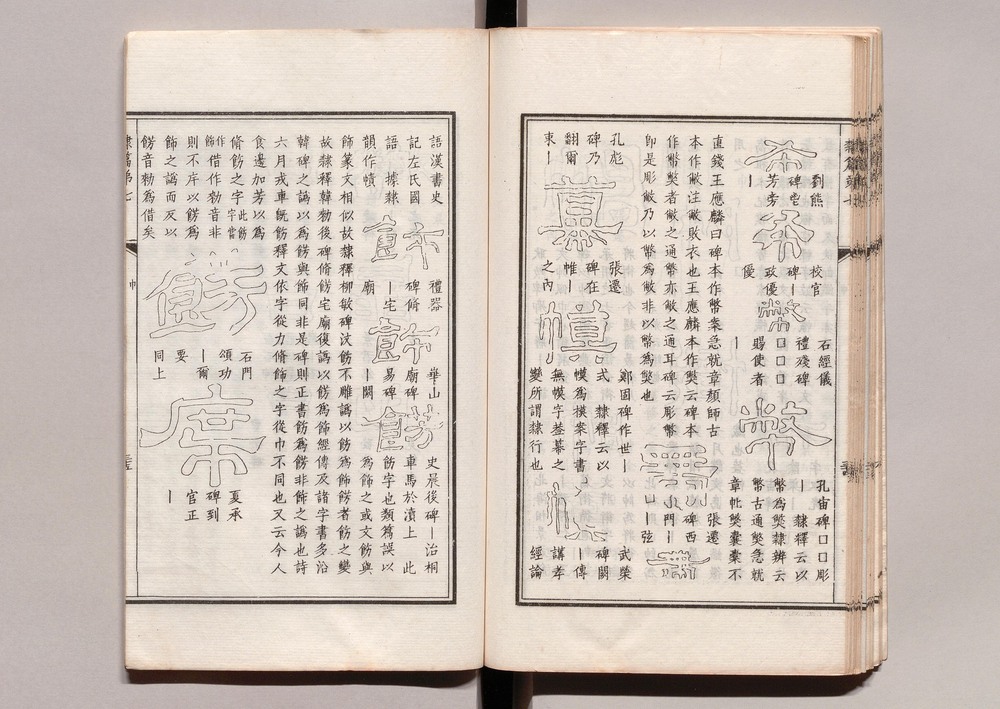 劉熊
芳旁
校官
碑｜
政優
優
石經儀
禮殘碑
□□□
賜使者
｜
孔宙碑□□彫
｜　隸釋云以
幣為獘隸辨云
幣古通獘急就
章牝獘囊橐不
直錢王應麟曰碑本作幣案急就章顏師古
本作敝注敝敗衣也王應麟本作獘云碑本
作幣獘者敝之通幣亦敝之通耳碑云彫幣
即是彫敝乃以幣為敝非以幣為獘也
張遷
碑西
門｜
｜弦
孔彪
碑乃
翻爾
束｜
幕
張遷
碑在
帷｜
之內
幙
鄭固碑作世｜
式　隸釋云以
幙為模案字書
無幙字葢幕之
變所謂隸行也
武榮
碑闕
｜傳
講孝
經論
語漢書史
記左氏國
語　據隸
韻作幘
飾
禮器
碑脩
｜宅
廟
飾
華山
廟碑
易碑
｜闕
餝
史晨後碑｜治桐
車馬於瀆上　此
飭字也類篇誤以
為飾之或文飭與
飾篆文相似故隸釋柳敏碑汶飭不雕譌以飭為飾餝者飭之變
故隸釋韓勑後碑脩餝宅廟復譌以餝為飾經傳及諸字書多沿
韓碑之譌以為餝與飾同非是碑則正書飭為餝非飾之譌也詩
六月戎車旣飭釋文依字從力脩飾之字從巾不同也又云今人
食邊加芳以為
脩飭之字此飭字當
作飾借作勑音非
則不㡿以餝為
飾之譌而反以
餝音勑為借矣
餝
石門
頌功
｜爾
要
同上
席
夏承
碑到
官正
｜
隸篇第七
巾